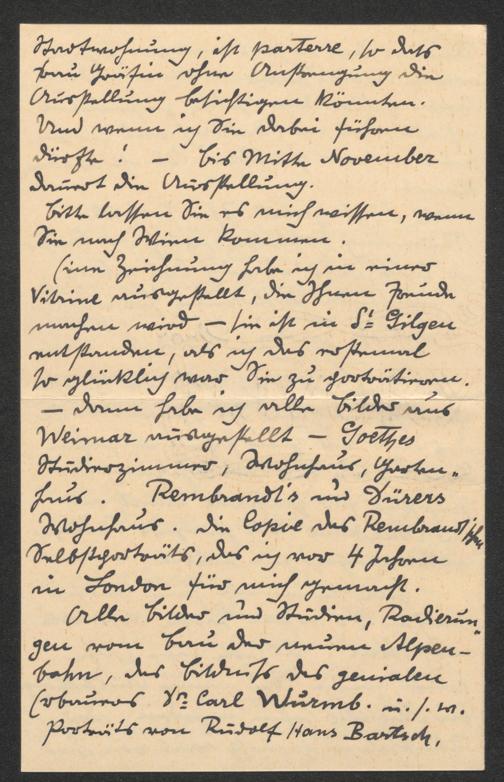 Stadtwohnung, ist parterre, so dass
Frau Gräfin ohne Anstrengung die
Ausstellung besichtigen könnten.
Und wenn ich Sie dabei führen
dürfte! — bis Mitte November
dauert die Ausstellung.
bitte lassen Sie es mich wissen, wenn
Sie nach Wien kommen.
Eine Zeichnung habe ich in einer
Vitrine ausgestellt, die Ihnen Freude
machen wird — sie ist in St Gilgen
entstanden, als ich das erstemal
so glücklich war Sie zu porträtieren.
— dann habe ich alle Bilder aus
Weimar ausgestellt — Goethes
Studierzimmer, Wohnhaus, Garten„
haus. Rembrandt's und Dürers
Wohnhaus. die Copie des Rembrandt'schen
Selbstporträts, das ich vor 4 Jahren
in London für mich gemacht.
Alle Bilder und Studien, Radierun„
gen vom Bau der neuen Alpen-
bahn, das Bildniss des genialen
Erbauers Dr Carl Wurmb. u. s. w.
Porträts von Rudolf Hans Bartsch,